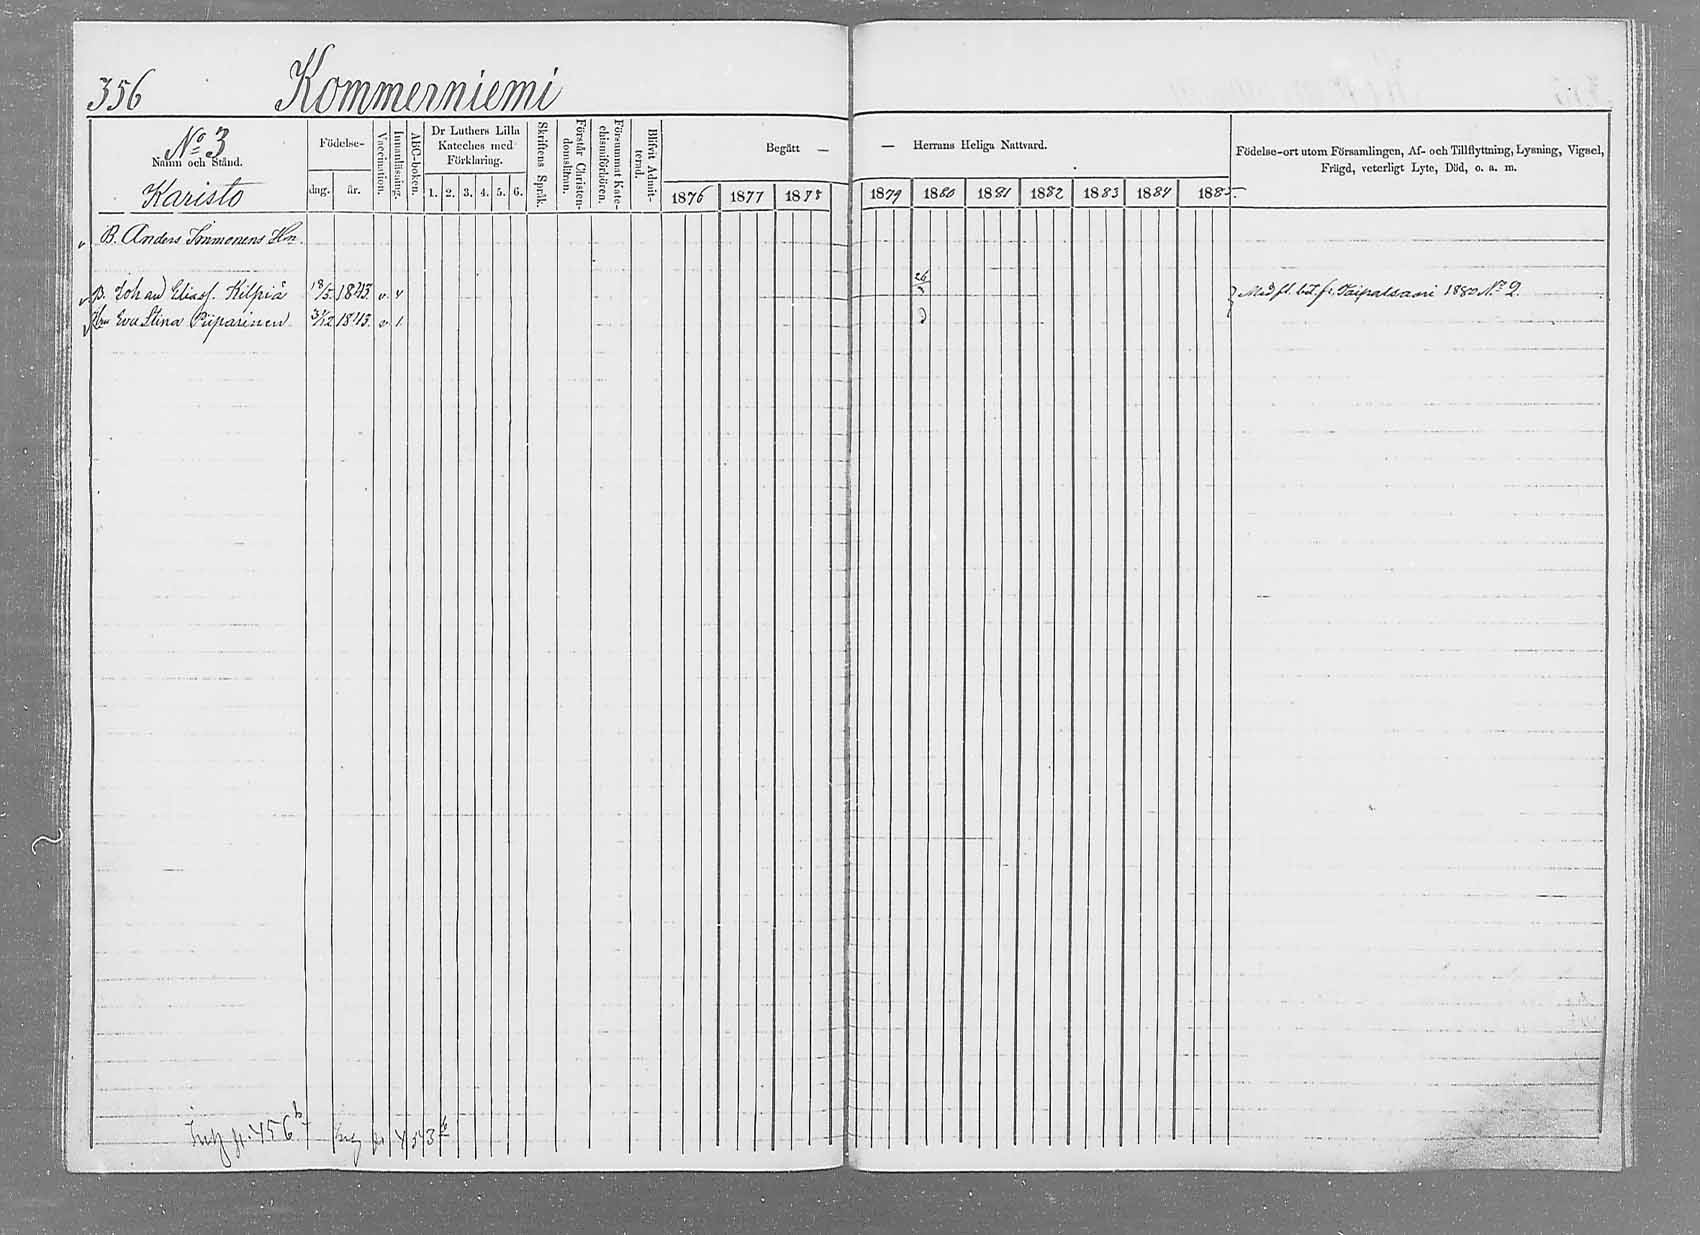 356 Kommerniemi
No 3
Namn och Stånd.
Karisto
Födelse-
dag. år.
Vaccination.
Innanläsning.
ABC-boken.
Dr Luthers Lilla
Kateches med
Förklaring.
1. 2. 3. 4. 5. 6.
Skriftens Språk.
Förstår Christen-
domsläran.
Försummat Kate-
chismiförhören.
Blifvit Admit-
terad.
Begått —
1876 1877 1878
— Herrans Heliga Nattvard.
1879 1880 1881 1882 1883 1884 1885.
Födelse-ort utom Församlingen, Af- och Tillflyttning, Lysning, Vigsel,
Frägd, veterligt Lyte, Död, o. a. m.
v B. Anders Immonens Hm.
v B. Johan Eliass. Kilpiä 18/5. 1843. v. 4 26/3 Med fl. bet. fr. Taipalsaari 1880 No 2.
v Hm Eva Stina Piiparinen 31/12 1843. v. 1.